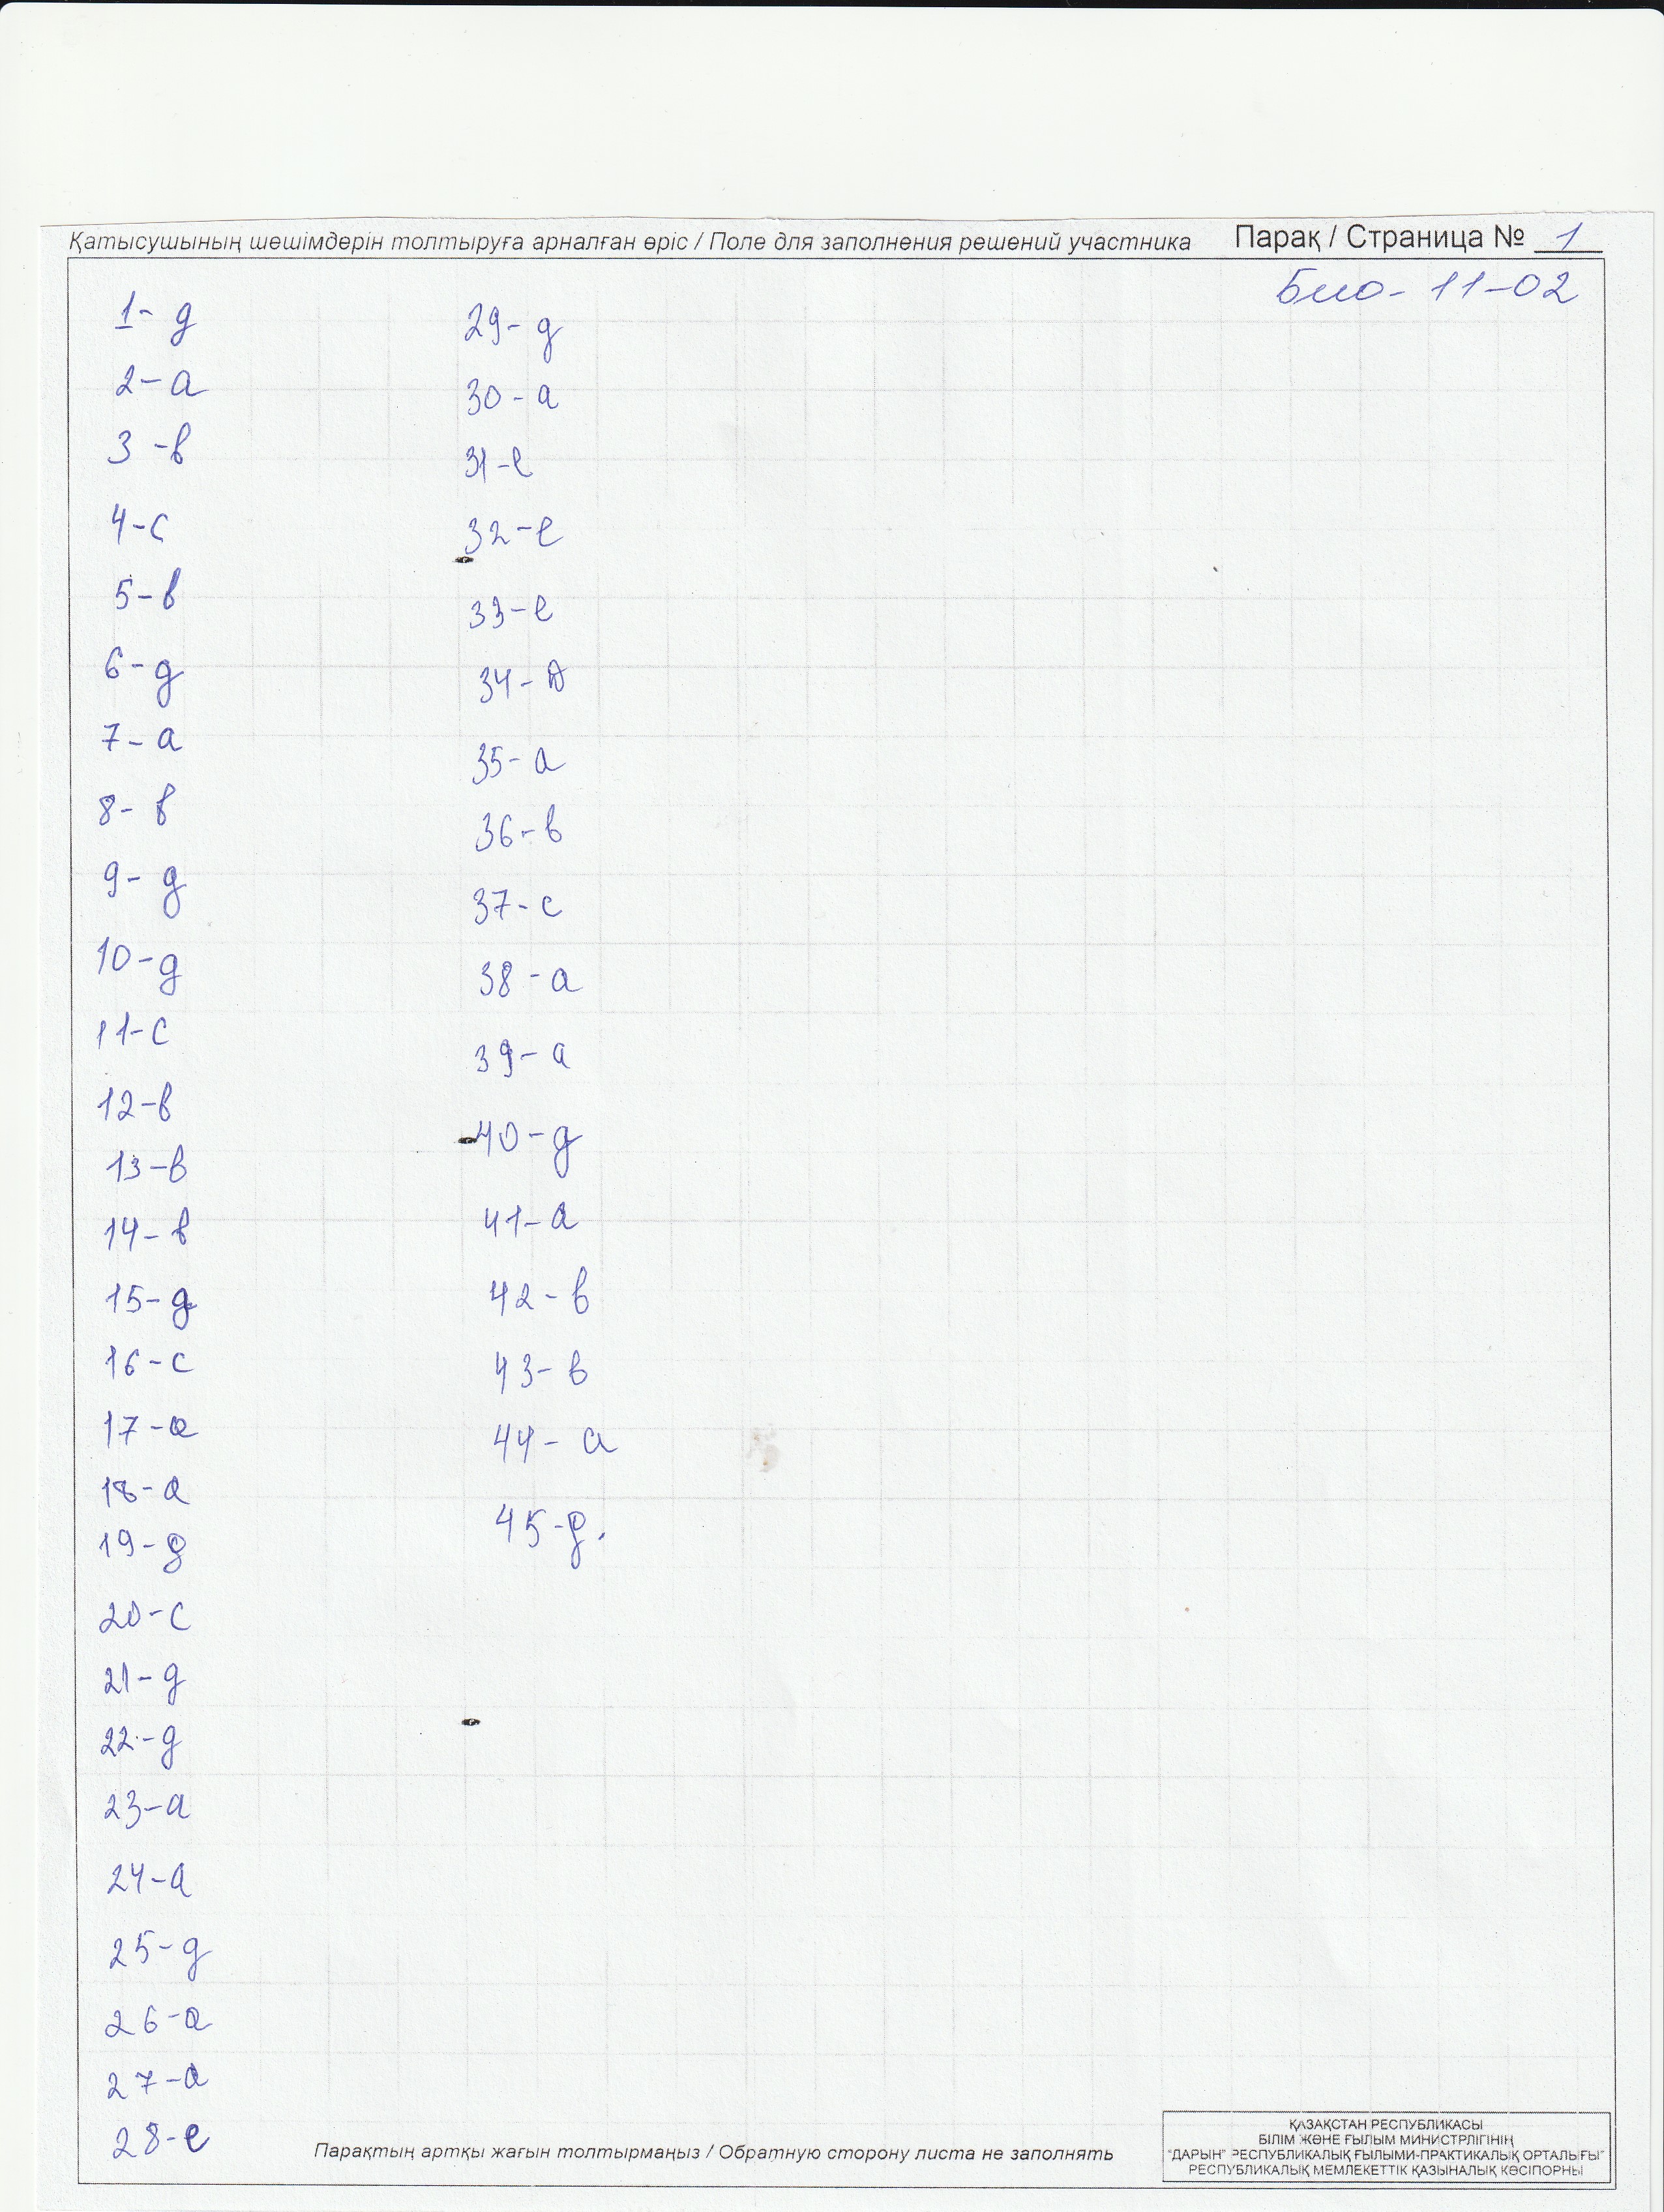 Қатысушының шешімдерін толтыруға арналған өріс / Поле для заполнения решений участника
Парақ / Страница № 1
Био- 11-02
1- g
2-a
3-в
4-c
5-в
6-g
7-a
8-в
9-g
10-g
11-c
12-в
13-в
14-в
15-g
16-c
17-a
18-a
19-g
20-c
21-g
22-g
23-a
24-a
25-g
26-a
27-a
28-e
29-g
30-a
31-e
32-e
33-e
34-
35-a
36-в
37-c
38-a
39-a
40-g
41-a
42-в
43-в
44-a
45-g.
Парақтың артқы жағын толтырмаңыз / Обратную сторону листа не заполнять
ҚАЗАҚСТАН РЕСПУБЛИКАСЫ
БІЛІМ ЖӘНЕ ҒЫЛЫМ МИНИСТРЛІГІНІҢ
"ДАРЫН" РЕСПУБЛИКАЛЫҚ ҒЫЛЫМИ-ПРАКТИКАЛЫҚ ОРТАЛЫҒЫ"
РЕСПУБЛИКАЛЫҚ МЕМЛЕКЕТТІК ҚАЗЫНАЛЫҚ КӘСІПОРНЫ